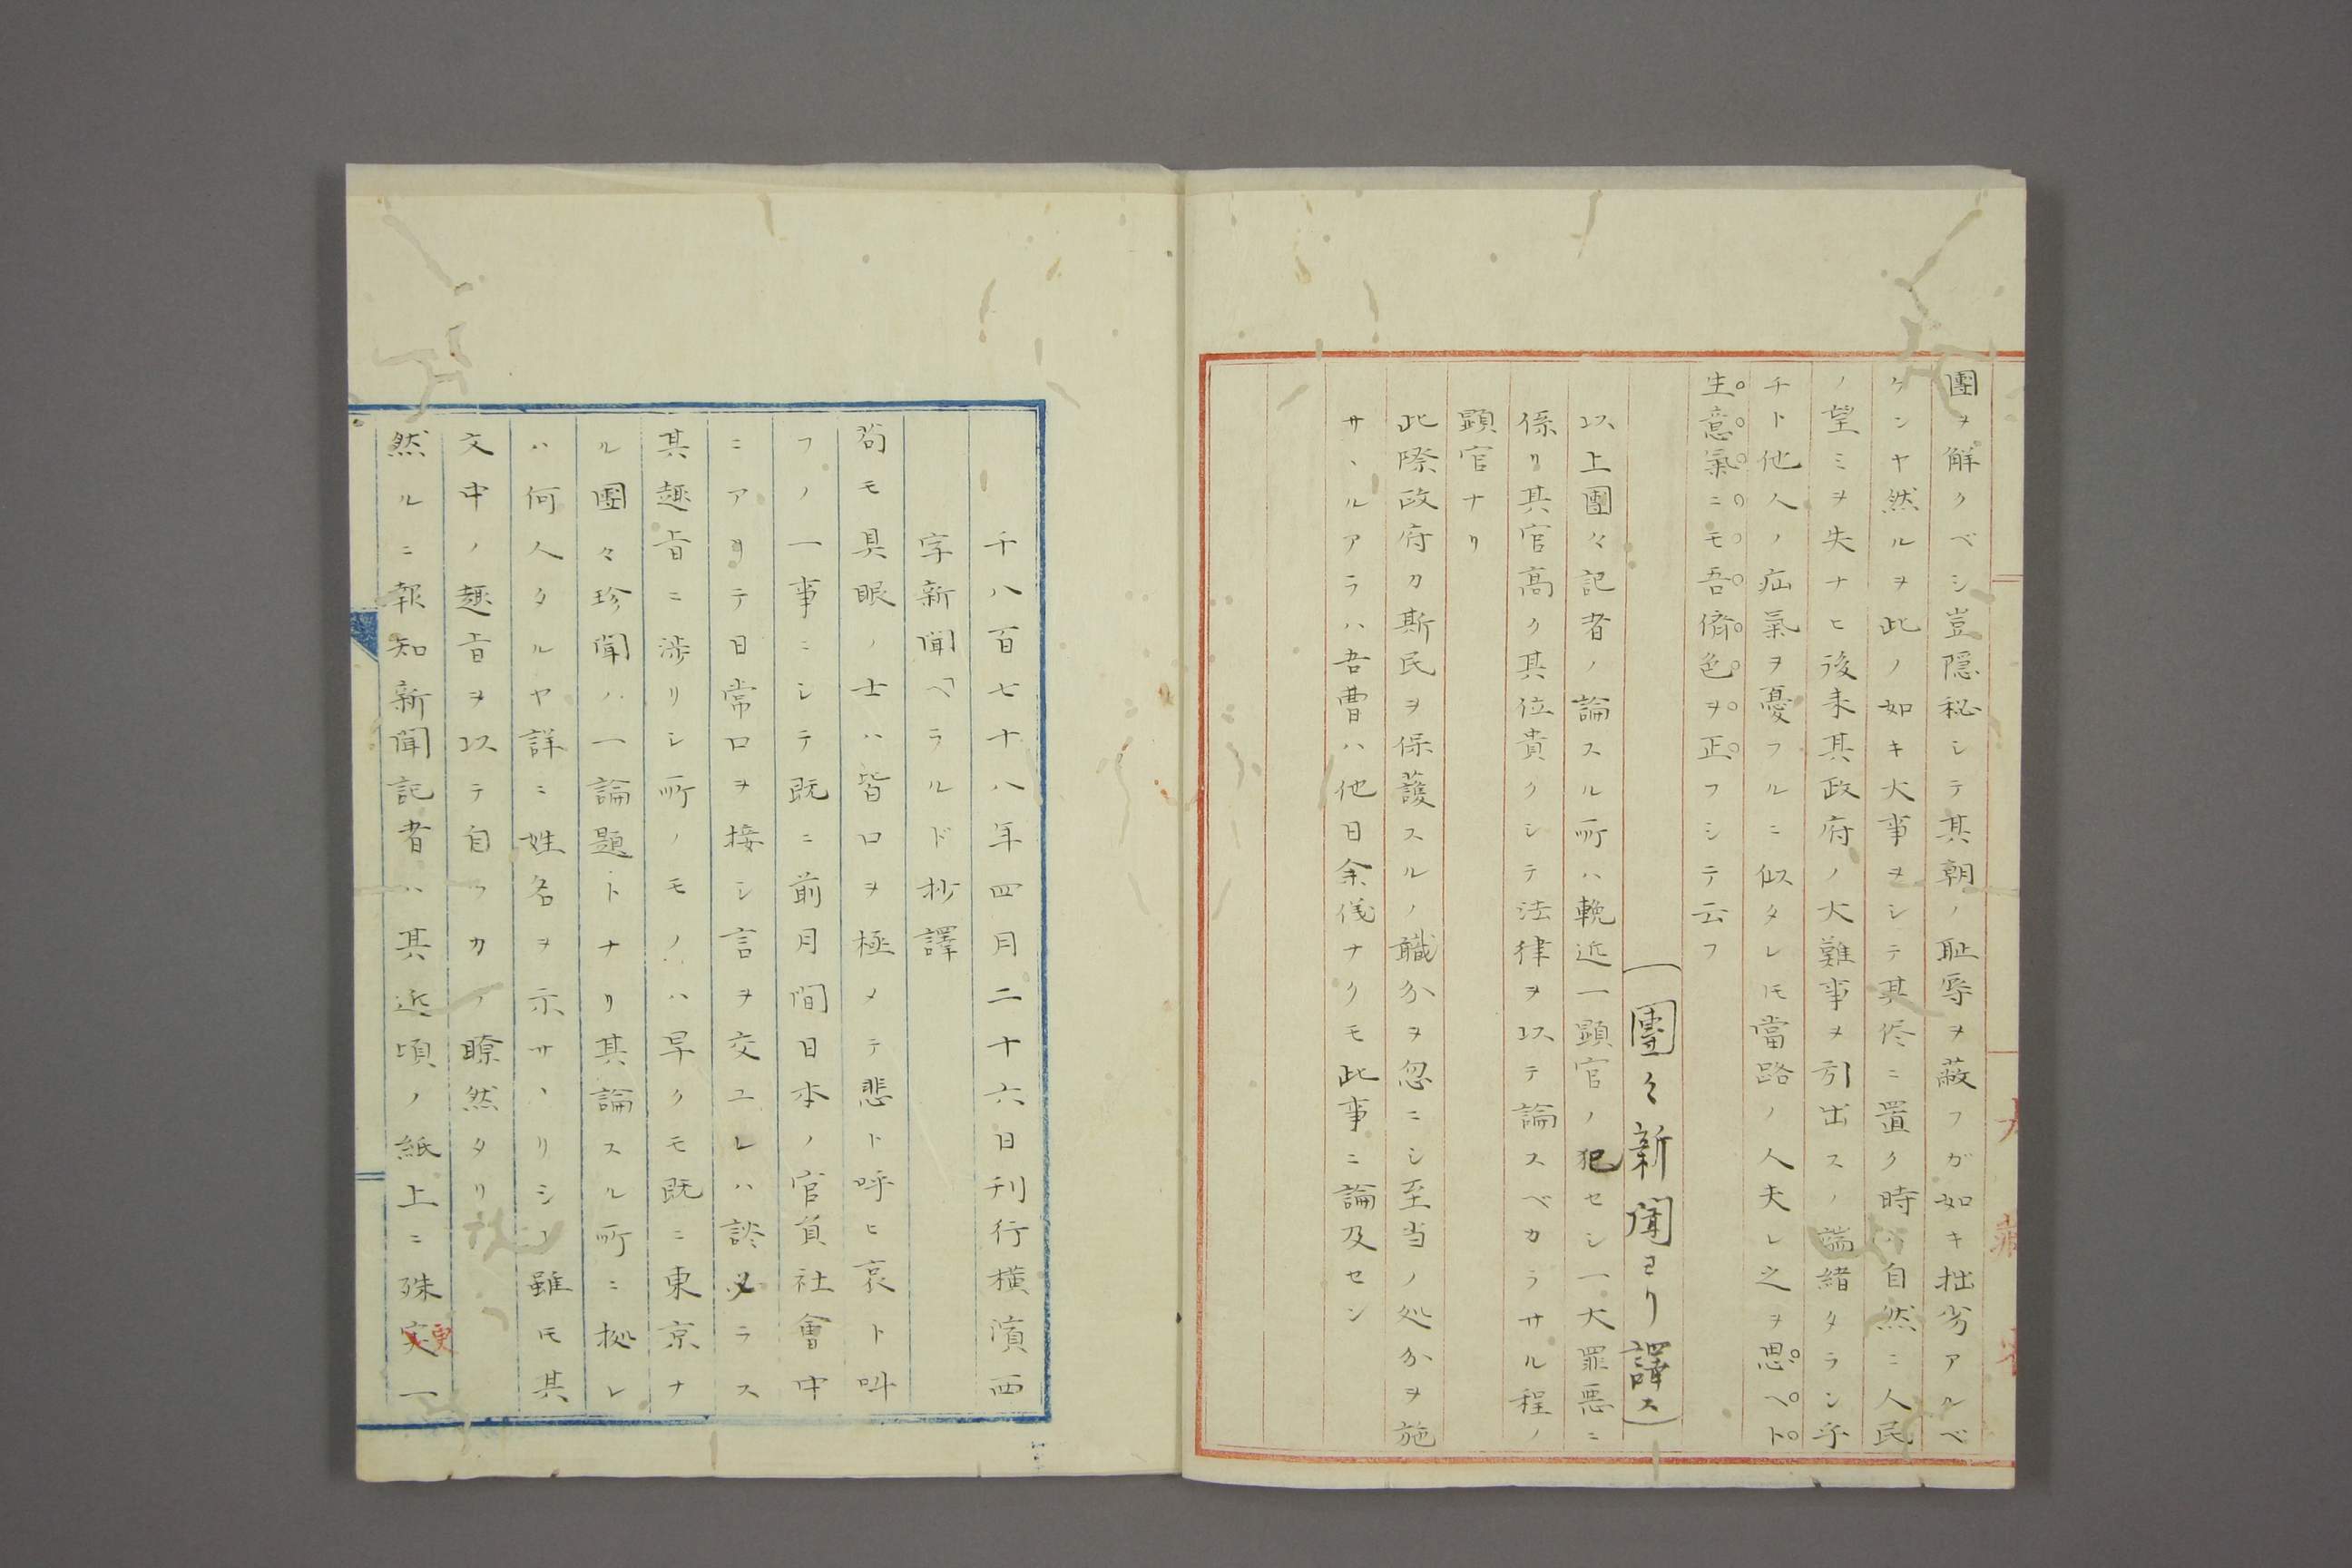 團ヲ解クベシ豈隠秘シテ其朝ノ耻辱ヲ蔽フガ如キ拙劣アルベ
ケンヤ然ルヲ此ノ如キ大事ヲシテ其侭ニ置ク時ハ自然ニ人民
ノ望ミヲ失ナヒ後来其政府ノ大難事ヲ引出スノ端緒タラン乎
チト他人ノ疝氣ヲ憂フルニ似タレ𪜈當路ノ人夫レ之ヲ思ヘト
生意氣ニモ吾儕色ヲ正フシテ云フ
(團々新聞ヨリ譯ス)
以上團々記者ノ論スル所ハ輓近一顕官ノ犯セシ一大罪悪ニ
係リ其官高ク其位貴クシテ法律ヲ以テ論スベカラサル程ノ
顕官ナリ
此際政府カ斯民ヲ保護スルノ職分ヲ忽ニシ至当ノ処分ヲ施
サヽルアラハ吾曹ハ他日余儀ナクモ此事ニ論及セン
千八百七十八年四月二十六日刊行横濱西
字新聞「ヘラルド抄譯
苟モ具眼ノ士ハ皆口ヲ極メテ悲ト呼ヒ哀ト叫
フノ一事ニシテ既ニ前月間日本ノ官員社會中
ニアリテ日常口ヲ接シ言ヲ交ユレハ談必ラス
其趣旨ニ渉リシ所ノモノハ早クモ既ニ東京ナ
ル團々珍聞ノ一論題トナリ其論スル所ニ拠レ
ハ何人タルヤ詳ニ姓名ヲ示サヽリシヿ雖𪜈其
文中ノ趣旨ヲ以テ自ラカノ瞭然タリ
然ルニ報知新聞記者ハ其近頃ノ紙上ニ殊更一